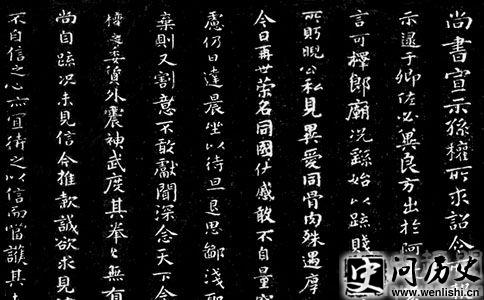 尚書宣示孫權所求詔令
示逮于卿佐必冀良方出於阿
言可擇郎廟況繇始以疏賤
所眄睨公私見異愛同骨肉殊遇厚
今日再世榮名同國休慼敢不自量竊
愚慮仍日達晨坐以待旦退思鄙淺聖
棄則又割意不敢獻聞深念天下今
權之委質外震神武度其拳拳無有
尚自疏況未見信今推款誠欲求見信
不自信之心亦宜待之以信而當護其未
史问历史
www.wenlishi.cn